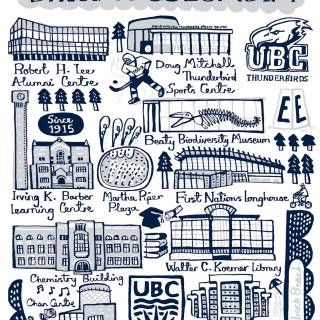 Robert H. Lee
Alumni Centre
Doug Mitchell
Thunderbird
Sports Centre
UBC
THUNDERBIRDS
Since
1915
Beaty Biodiversity Museum
Irving K. Barber
Learning Centre
Martha Piper
Plaza
First Nations Longhouse
Chemistry Building
Walter C. Koerner Library
Chan Centre
UBC